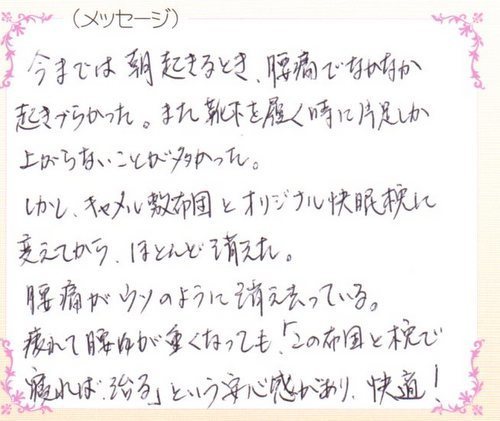 (メッセージ)
今までは朝起きるとき、腰痛でなかなか
起きづらかった。また靴下を履く時に片足しか
上がらないことが多かった。
しかし、キャメル敷布団とオリジナル快眠枕に
変えてから、ほとんど消えた。
腰痛がウソのように消え去っている。
疲れて腰が重くなっても、「この布団と枕で
寝れば、治る」という安心感があり、快適!